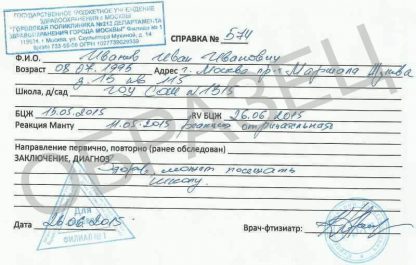 ГОСУДАРСТВЕННОЕ БЮДЖЕТНОЕ УЧРЕЖДЕНИЕ
ЗДРАВООХРАНЕНИЯ Г. МОСКВЫ
"ГОРОДСКАЯ ПОЛИКЛИНИКА №212 ДЕПАРТАМЕНТА
ЗДРАВООХРАНЕНИЯ ГОРОДА МОСКВЫ" Филиал № 1
СПРАВКА № 574
Ф.И.О. Иванов Иван Иванович
Возраст 08.07.1995 Адрес г. Москва пр-т Маршала Жукова
Школа, д/сад ГОУ СОШ №1315
БЦЖ 15.05.2015 RV БЦЖ 26.06.2015
Реакция Манту 11.05.2015 реакция отрицательная
Направление первично, повторно (ранее обследован)
ЗАКЛЮЧЕНИЕ, ДИАГНОЗ
Здоров, может посещать
школу.
Для
ФИЛИАЛ №1
Дата 26.06.2015 Врач-фтизиатр:
ОБРАЗЕЦ